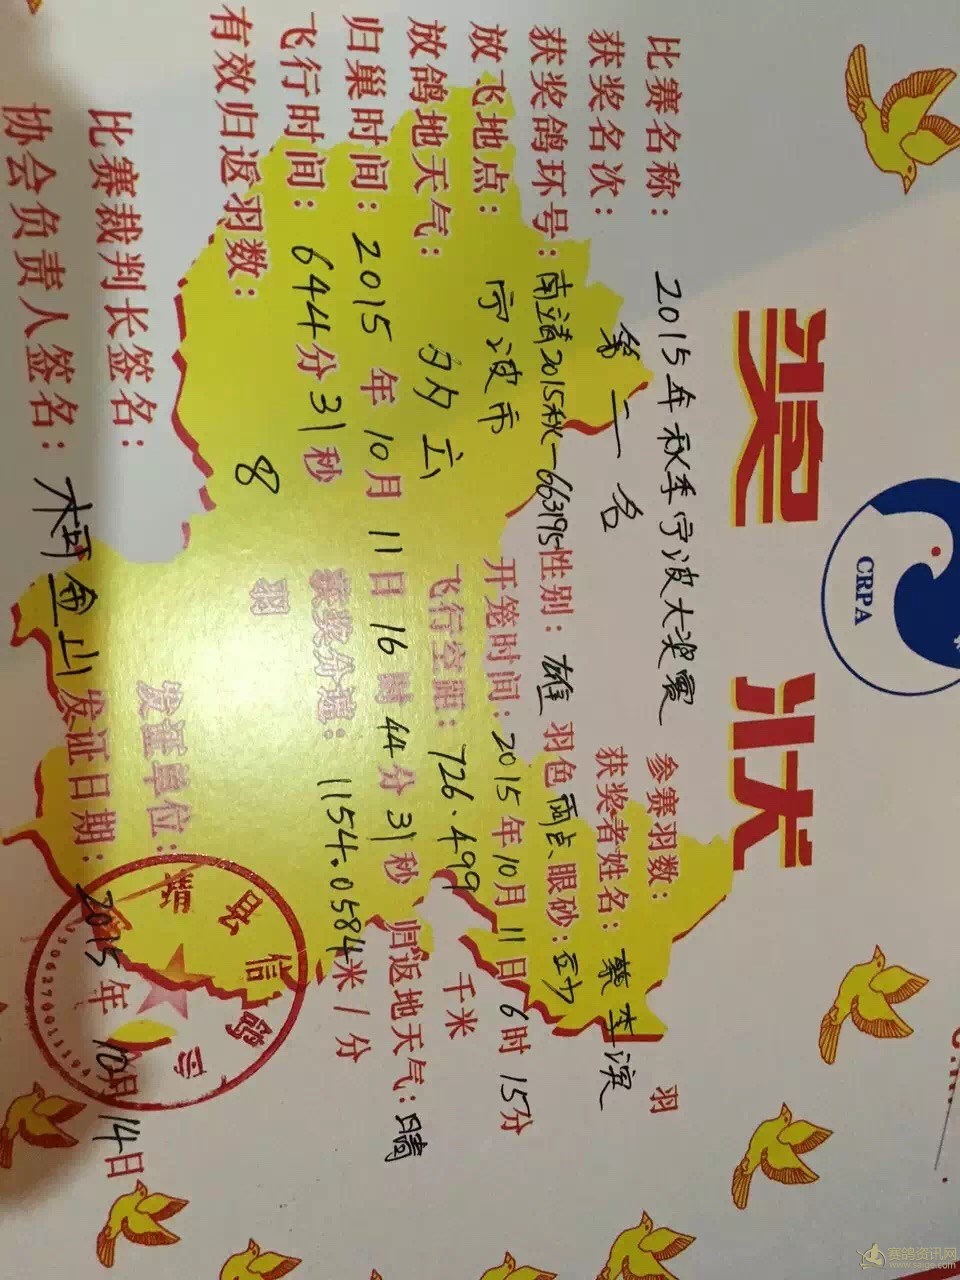 CRPA
奖 状
比赛名称: 2015年秋季宁波大奖赛 参赛羽数: 羽
获奖名次: 第二名 获奖者姓名: 蔡李滨
获奖鸽环号: 南靖2015秋-663195 性别: 雄 羽色 雨点 眼砂: 砂
放飞地点: 宁波市 开笼时间: 2015年10月11日6时15分
放鸽地天气: 多云 飞行空距: 743.499 千米
归巢时间: 2015年10月11日16时44分31秒 归返地天气: 晴
飞行时间: 644分31秒 获奖分速: 1154.0584米/分
有效归返羽数: 8 羽
比赛裁判长签名: 发证单位:
协会负责人签名: 金山 发证日期: 2015年10月14日
靖县信鸽
3506270011104
赛鸽资讯网
www.saige.com